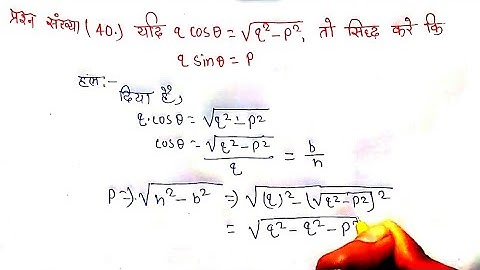 प्रश्न संख्या (40.) यदि q cosθ = √q²-p², तो सिद्ध करे कि
q sinθ = p
हल:-
दिया है,
q.cosθ = √q²-p²
cosθ = √q²-p² / q = b/h
P => √h²-b² => √(q)²-(√q²-p²)²
= √q²-q²-p²